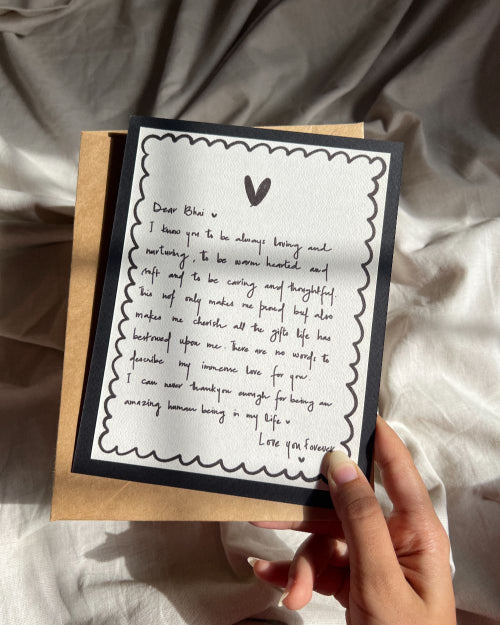 Dear Bhai ♥
I know you to be always loving and
nurturing, to be warm hearted and
soft and to be caring and thoughtful.
This not only makes me proud but also
makes me cherish all the gifts life has
bestowed upon me. There are no words to
describe my immense love for you.
I can never thankyou enough for being an
amazing human being in my life ♥
Love you Forever